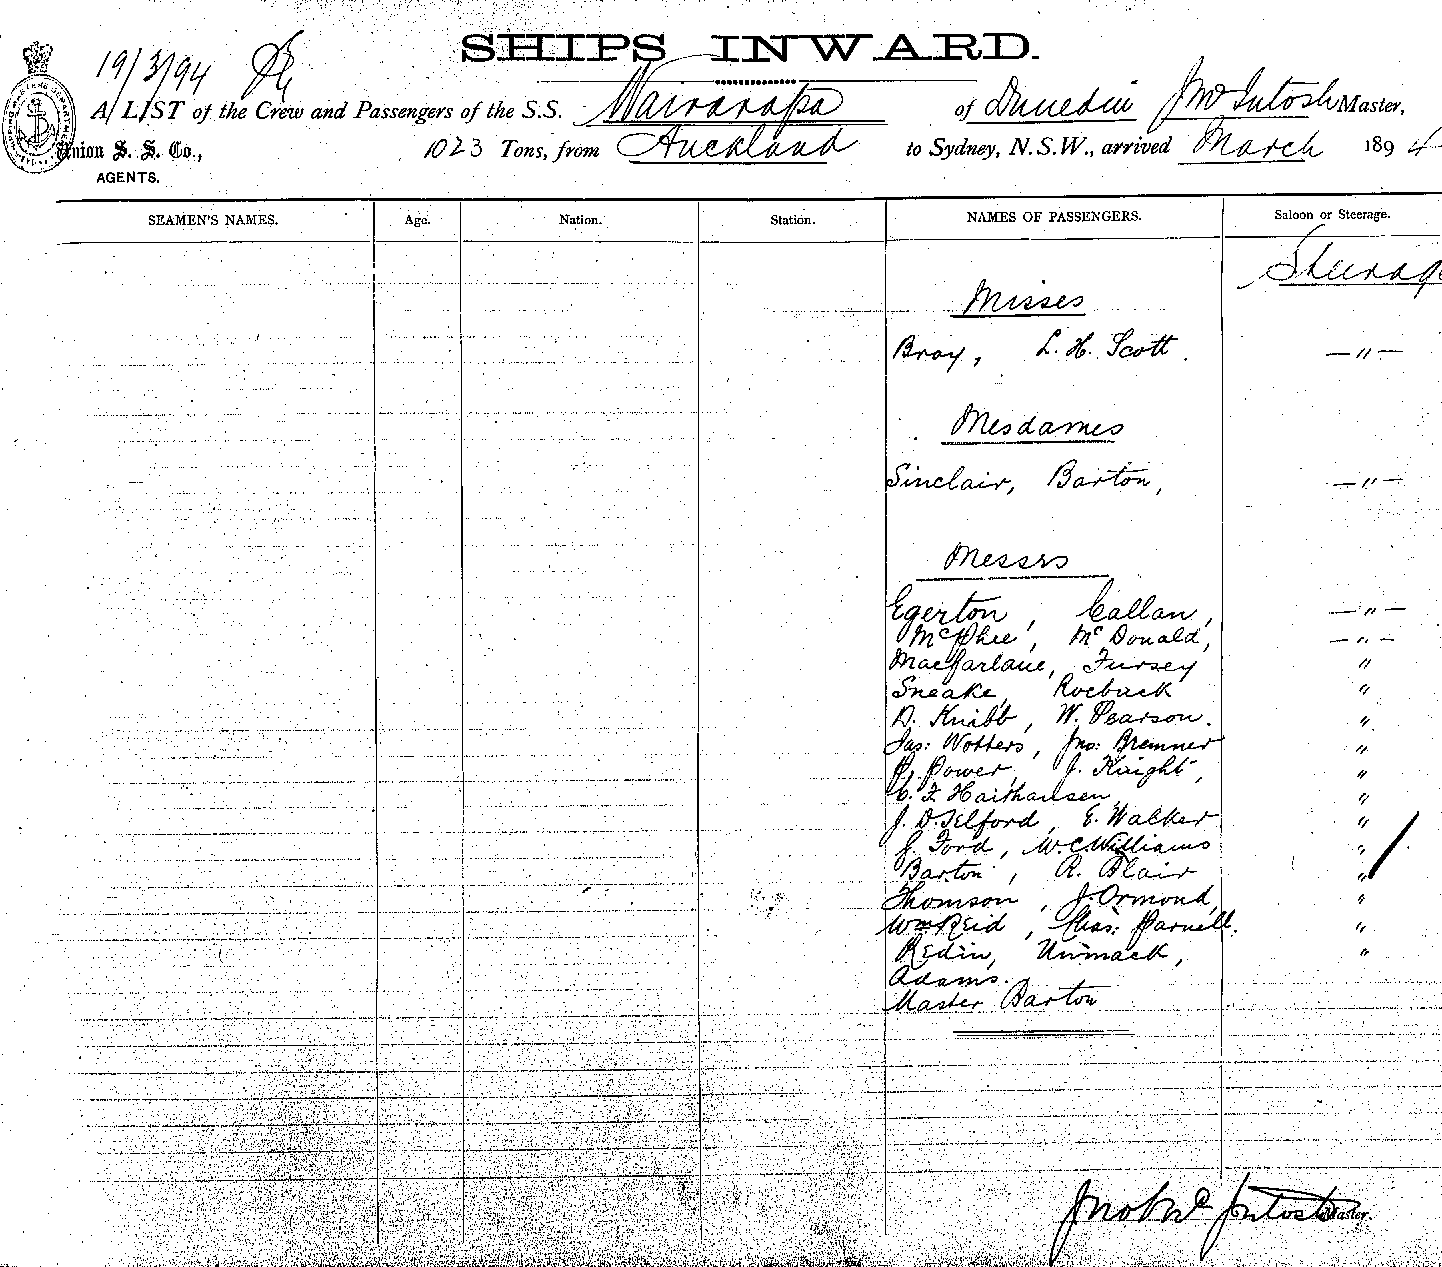 SHIPS INWARD.
19/3/94
A LIST of the Crew and Passengers of the S.S. Wairarapa of Dunedin Jno McIntosh Master,
Union S. S. Co., 1023 Tons, from Auckland to Sydney, N.S.W., arrived March 1894
AGENTS.
SEAMEN'S NAMES. Age. Nation. Station. NAMES OF PASSENGERS. Saloon or Steerage.
Steerage
Misses
Bray, L. H. Scott. — " —
Mesdames
Sinclair, Barton, — " —
Messrs
Egerton, Callan, — " —
McPhee, McDonald, — " —
Macfarlane, Fursey "
Sneake, Roebuck "
D. Knibb, W. Pearson. "
Jas: Wotters, Jno: Bremner "
P. Power, J. Knight, "
C. F. Haithausen "
J. D. Telford, E. Walker "
J. Ford, McWilliams "
Barton, R. Blair "
Thomson, J. Ormond, "
Wm Reid, Chas: Parnell. "
Redin, Unmack, "
Adams.
Master Barton
Jno McIntosh Master.